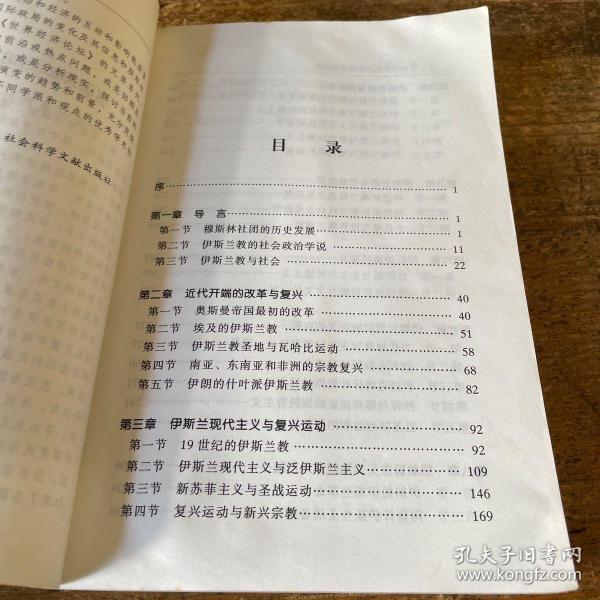 治和经济的互动和影响
国际政局的变化及其信息和
《世界经济论坛》的
前沿或热点问题，或是
，或是分析现实，探讨
演变的趋势和前景，充分
不同学派和观点的优秀
社会科学文献出版社
目 录
序…………1
第一章 导 言…………1
第一节 穆斯林社团的历史发展…………1
第二节 伊斯兰教的社会政治学说…………11
第三节 伊斯兰教与社会…………22
第二章 近代开端的改革与复兴…………40
第一节 奥斯曼帝国最初的改革…………40
第二节 埃及的伊斯兰教…………51
第三节 伊斯兰教圣地与瓦哈比运动…………58
第四节 南亚、东南亚和非洲的宗教复兴…………68
第五节 伊朗的什叶派伊斯兰教…………82
第三章 伊斯兰现代主义与复兴运动…………92
第一节 19世纪的伊斯兰教…………92
第二节 伊斯兰现代主义与泛伊斯兰主义…………109
第三节 新苏菲主义与圣战运动…………146
第四节 复兴运动与新兴宗教…………169
孔夫子旧书网
www.kongfz.com